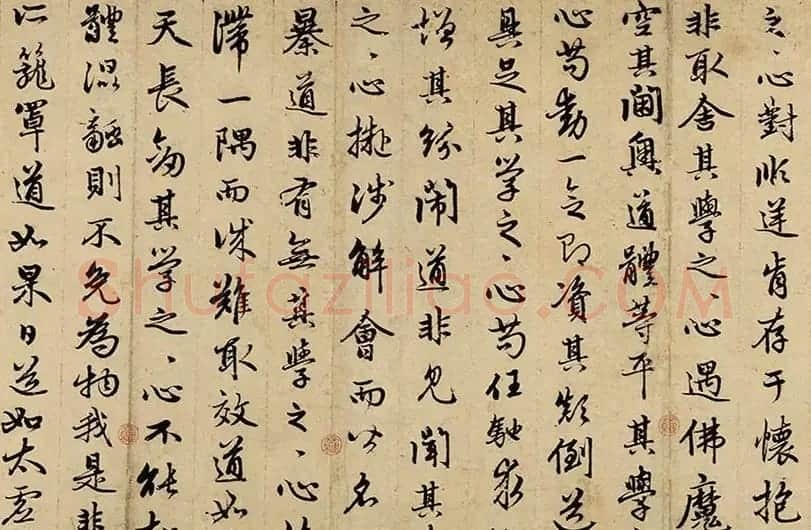 之心對順逆肯存于懷抱
非取舍其學之心遇佛魔
空其閫奧道體等平其學
心苟動一念即資其顛倒道
具足其學之心苟任馳求
增其紛鬧道非見聞其
之心擬涉解會而此名
暴道非有無其學之心
滯一隅而誠難取效道如
天長多其學之心不能
體混融則不免為物我是非
亡籠罩道如杲日道如太虛
Shufaziliao.COM